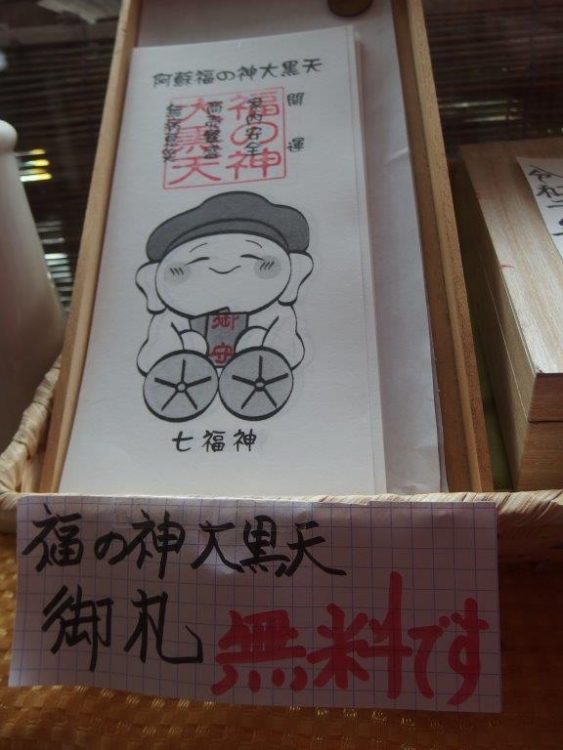 阿蘇福の神大黒天
開運
福の神
大黒天
家内安全
商売繁盛
御守
七福神
福の神大黒天
御札
無料です